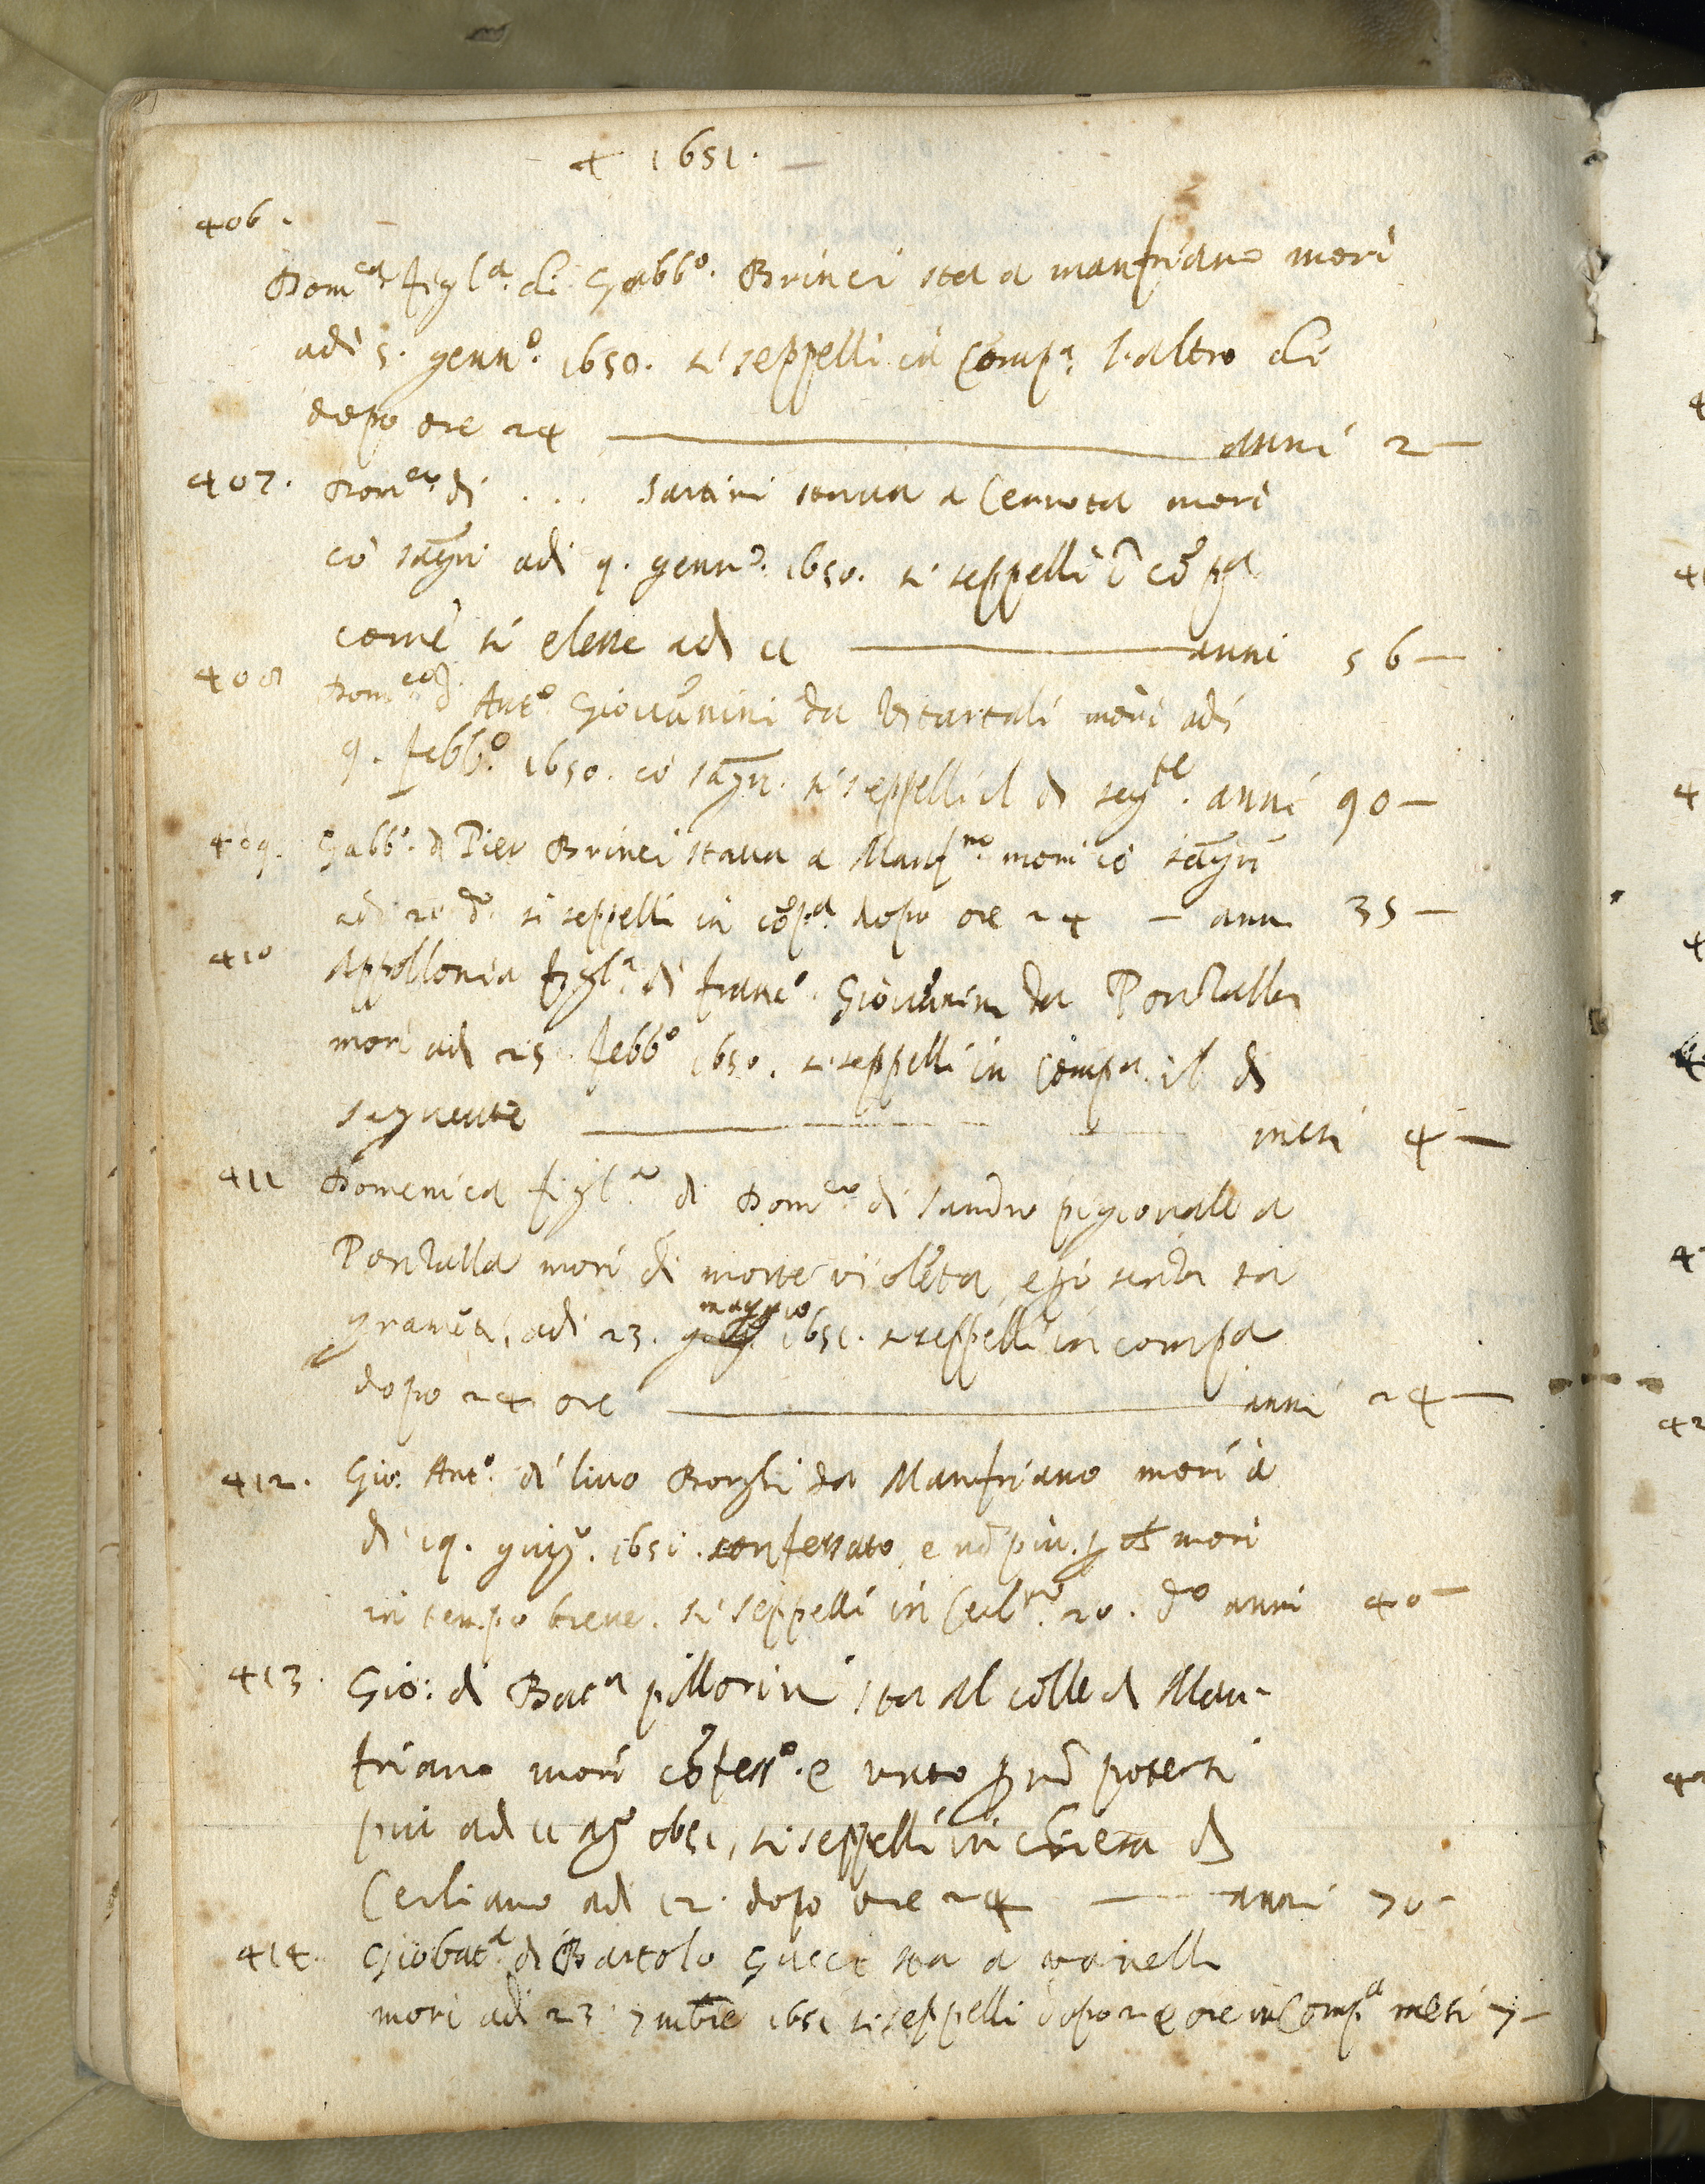 + 1651.
406.
Dom.ca figl.a di Gabb.o Brinci sta a manfriano morì
adi 5. genn.o 1650. si seppellì in Comp.a l'altro dì
dopo ore 24 anni 2
407. Dom.co di . . . Sartini staua a Cennota morì
cō sagrī adi 9. genn.o 1650. si seppellì ī cōpa
come si elesse adi 11 anni 56
408 Dom.co d' Ant.o Giouānini da Vitartali morì adi
9. febb.o 1650. cō sagrī. si seppellì il dì seg.te anni 90
409. Gabb.o di Pier Brinci staua a Manf.no morì cō sagrī
adi 20 d.o si seppellì in cōp.a dopo ore 24 anni 35
410 Appollonia figl.a di franc.o Giouānini da Pontalla
morì adi 25. febb.o 1650. si seppellì in Comp.a il dì
seguente mesi 4
411 Domenica figl.a di Dom.co di Sandro pigionale a
Pontalla morì di morte violēta, e pò senza sa
gramēti, adi 23. maggio 1651. si seppellì in compa
dopo 24 ore anni 24
412. Gio: Ant.o di liuo Borghi da Manfriano morì a
dì 19. giug.o 1651. confessato, e nō più, morì
in tempo breue. si seppellì in Cerl.no 20. d.o anni 40
413. Gio: di Bat.a pillorini sta al colle di Man-
friano morì cōfess.o e unto p nō potersi
più adi 11 ag.o 1651, si seppellì in chiesa di
Cerliano adi 12. dopo ore 24 anni 70
414. Giobat.a di Bartolo Gucci sta a vanelli
morì adi 23 7mbre 1651 si seppellì dopo 24 ore in Comp.a mesi 7